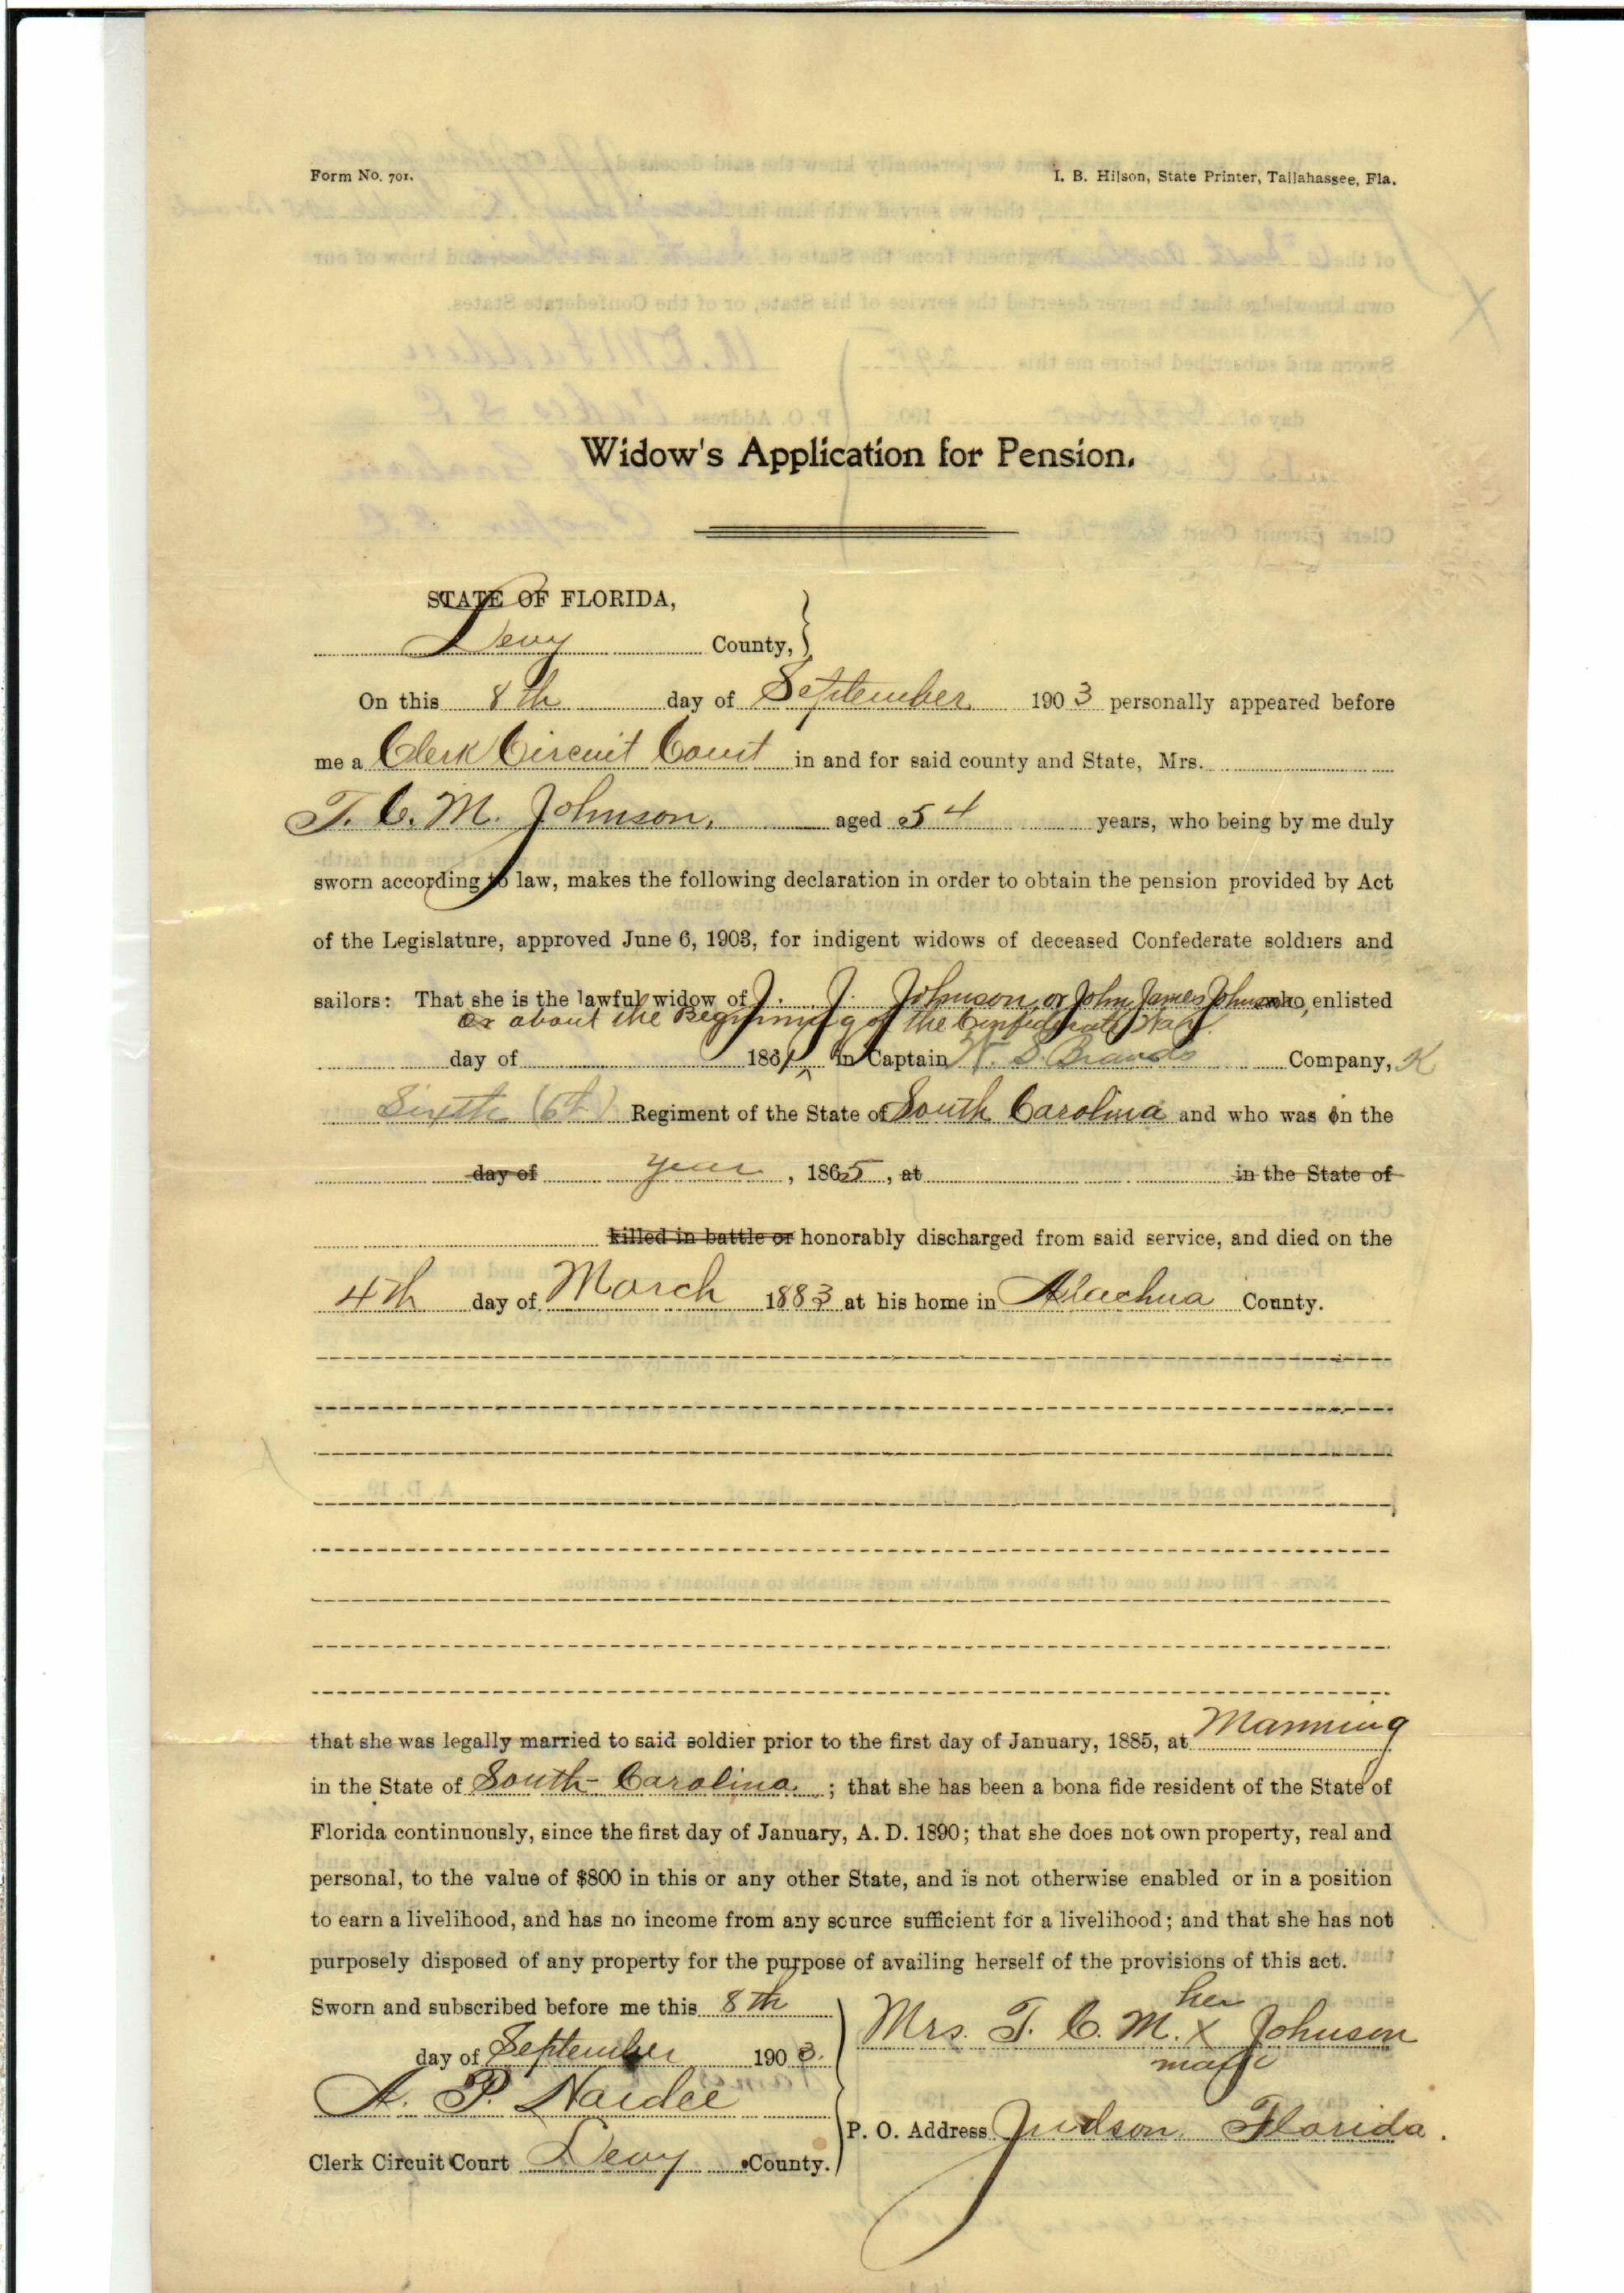 Form No. 701.
I. B. Hilson, State Printer, Tallahassee, Fla.
Widow's Application for Pension.
STATE OF FLORIDA,
Levy County,
On this 8th day of September 1903 personally appeared before
me a Clerk Circuit Court in and for said county and State, Mrs.
T. C. M. Johnson, aged 54 years, who being by me duly
sworn according to law, makes the following declaration in order to obtain the pension provided by Act
of the Legislature, approved June 6, 1903, for indigent widows of deceased Confederate soldiers and
sailors: That she is the lawful widow of J. J. Johnson, or John James Johnson who, enlisted
or about the Beginning of the Confederate War.
day of 1861 in Captain W. S. Brands Company, K
Sixth (6th) Regiment of the State of South Carolina and who was in the
day of year, 1865, at in the State of
killed in battle or honorably discharged from said service, and died on the
4th day of March 1883 at his home in Alachua County.
that she was legally married to said soldier prior to the first day of January, 1885, at Manning
in the State of South Carolina. ; that she has been a bona fide resident of the State of
Florida continuously, since the first day of January, A. D. 1890; that she does not own property, real and
personal, to the value of $800 in this or any other State, and is not otherwise enabled or in a position
to earn a livelihood, and has no income from any source sufficient for a livelihood; and that she has not
purposely disposed of any property for the purpose of availing herself of the provisions of this act.
Sworn and subscribed before me this 8th
day of September 1903.
A. P. Hardee
Clerk Circuit Court Levy County.
her
Mrs. T. C. M. X Johnson
mark
P. O. Address Judson, Florida.